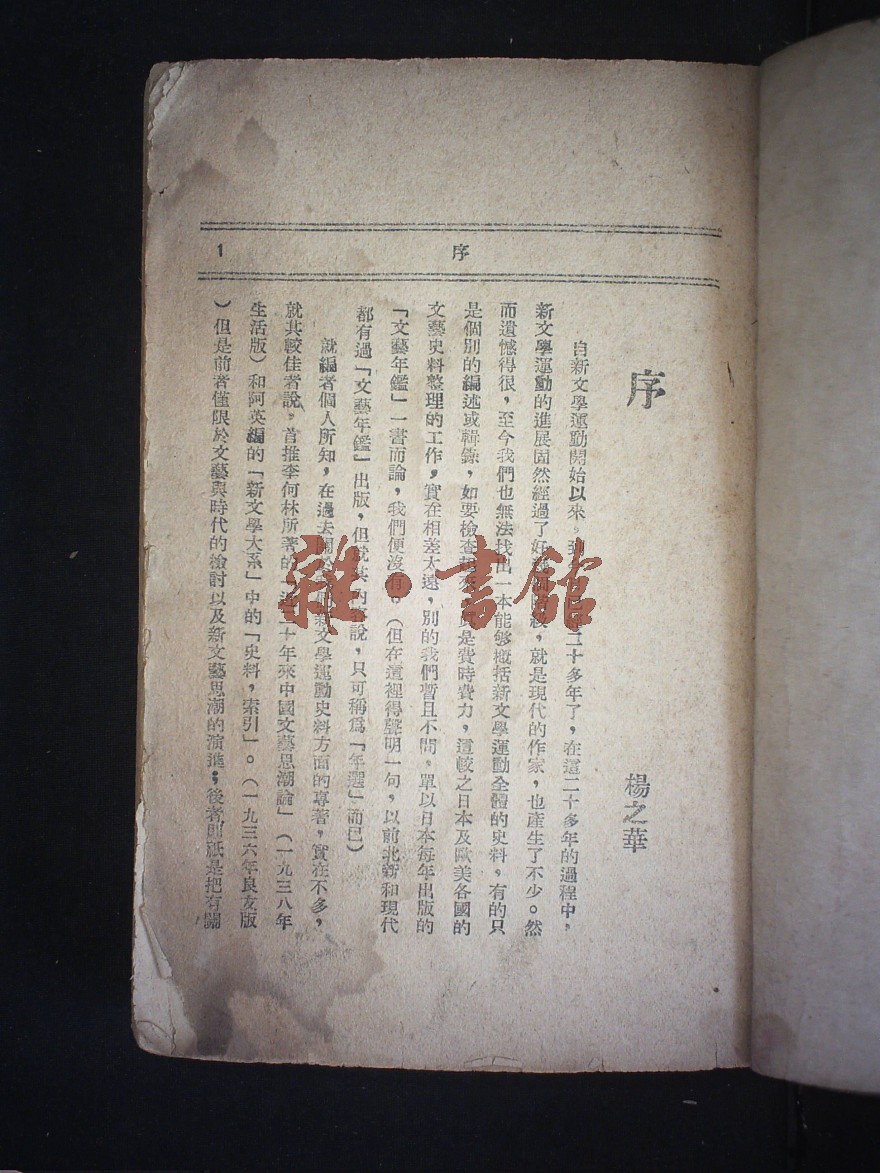 序
1
序
楊之華
自新文學運動開始以來，到二十多年了，在這二十多年的過程中，
新文學運動的進展固然經過了好，就是現代的作家，也產生了不少。然
而遺憾得很，至今我們也無法找出一本能够概括新文學運動全體的史料。有的只
是個別的編述或輯錄，如要檢查起來，是費時費力，這較之日本及歐美各國的
文藝史料整理的工作，實在相差太遠，別的我們暫且不問。單以日本每年出版的
「文藝年鑑」一書而論，我們便沒有。（但在這裡得聲明一句，以前北新和現代
都有過「文藝年鑑」出版，但就其內容說，只可稱爲「年選」而已）
就編者個人所知，在過去關於新文學運動史料方面的專著，實在不多，
就其較佳者說，首推李何林所著的「近二十年來中國文藝思潮論」（一九三八年
生活版）和阿英編的「新文學大系」中的「史料，索引」。（一九三六年良友版
）但是前者僅限於文藝與時代的檢討以及新文藝思潮的演進；後者則祇是把有關
雜·書館